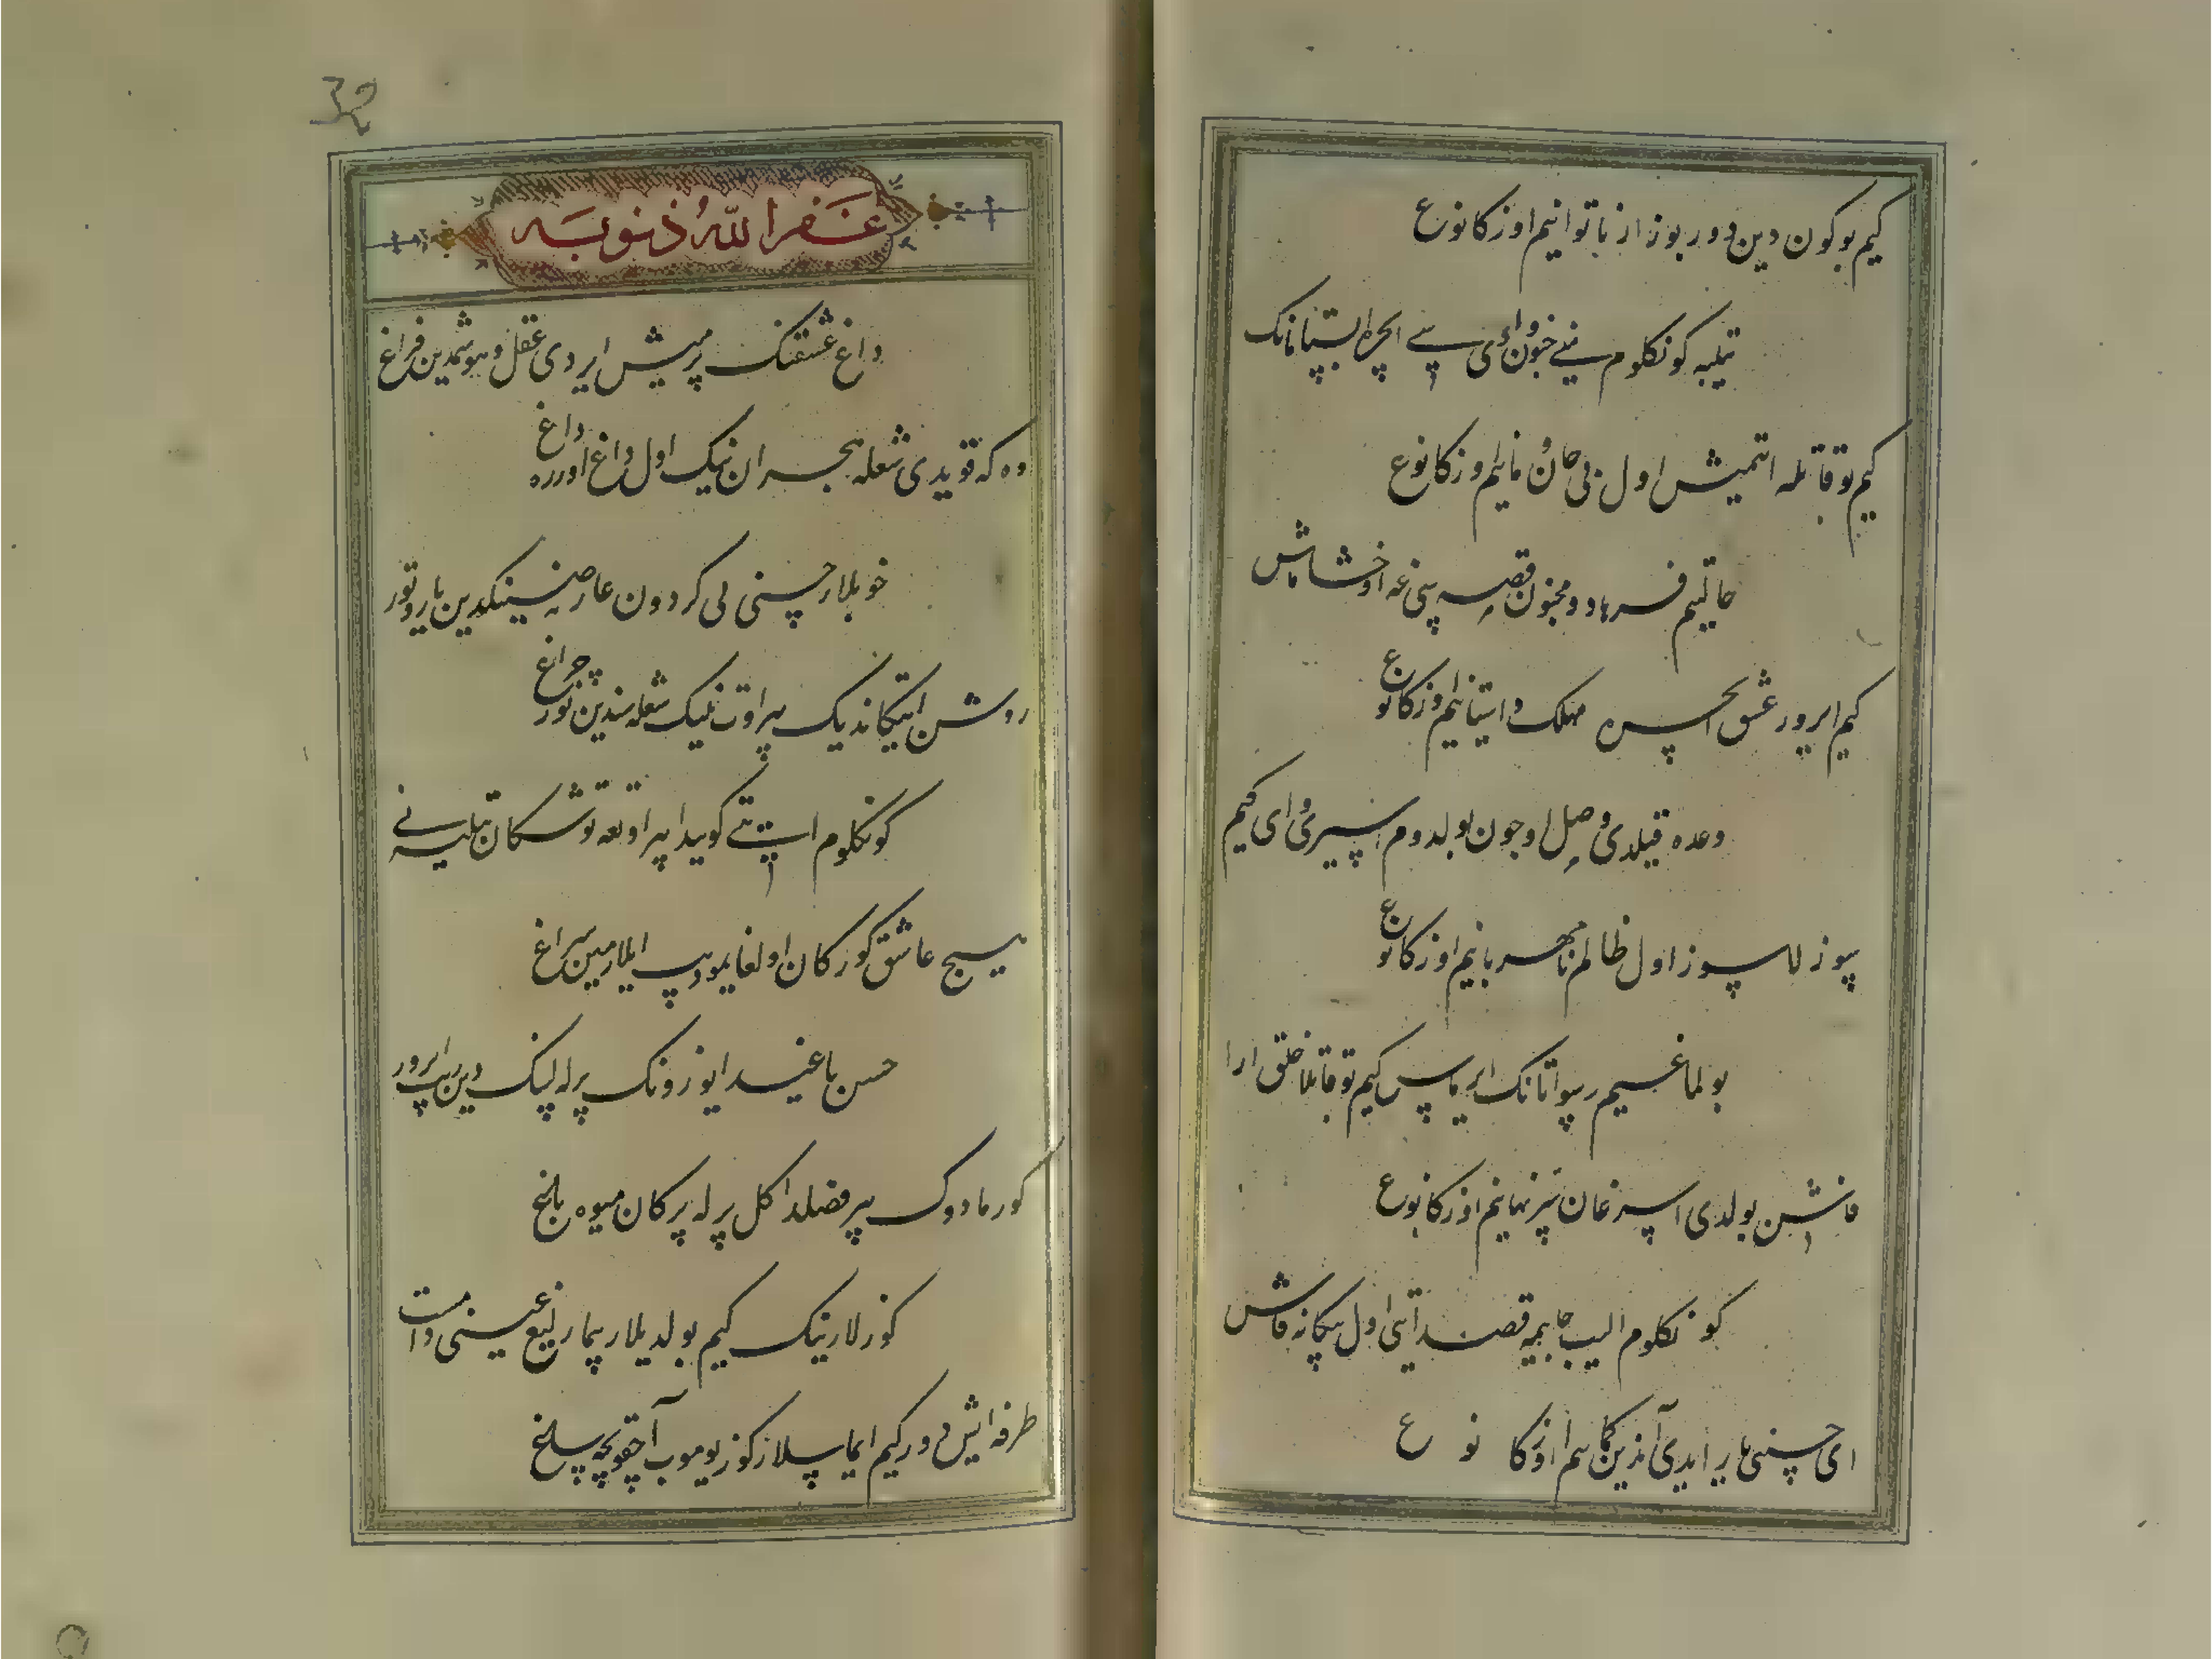 کیم بو کون دین دور بوزار ناتوانیم اوزکا نوع
تیلبه کونکلوم نی جنون وادی سی ایچره ایستامانک
کیم توقاتله ایتمیش اول بی خان و مانیم اوزکا نوع
حالیم فرهاد و مجنون قصه سی غه اوخشاماس
کیم ایرور عشق ایچره مهلک داستانیم اوزکا نوع
وعده قیلدی وصل اوچون بولدوم اسیری وای کیم
سوزلاسوز اول ظالم نامهربانیم اوزکا نوع
بولماغیم رسوا تانک ایرماس کیم توقاتلا خلق ارا
فاش بولدی اسرغان سر نهانیم اوزکا نوع
کونکلوم الیب جانیمه قصد ایتی اول بیکانه فاش
ای حسینی یار ایدی آندین کمانیم اوزکا نوع
32
غفر الله ذنوبه
داغ عشقنک بیرمیش ایردی عقل و هوشمدین فراغ
وه که قویدی شعله هجران نینک اول داغ اوزره داغ
خوبلار حسنی لی کردون عارضینکدین یاروتور
روشن ایتکاندیک بیر اوت نینک شعله سیدین یوز چراغ
کونکلوم ایتی کویدا بیر اوتغه توشکان تیلبه نی
هیچ عاشق کورکان اولغایمو دیب ایلارمین سراغ
حسن باغیدا یوزونک بیرله لبنک دین ایرور
کورمادوک بیر فصلدا کل بیرله بیرکان میوه باغ
کوزلارینک کیم بولدیلار بیمار لیغ عینی دا مست
طرفه ایش دور کیم ایماسلار کوز یوموب آچقونچه ساغ